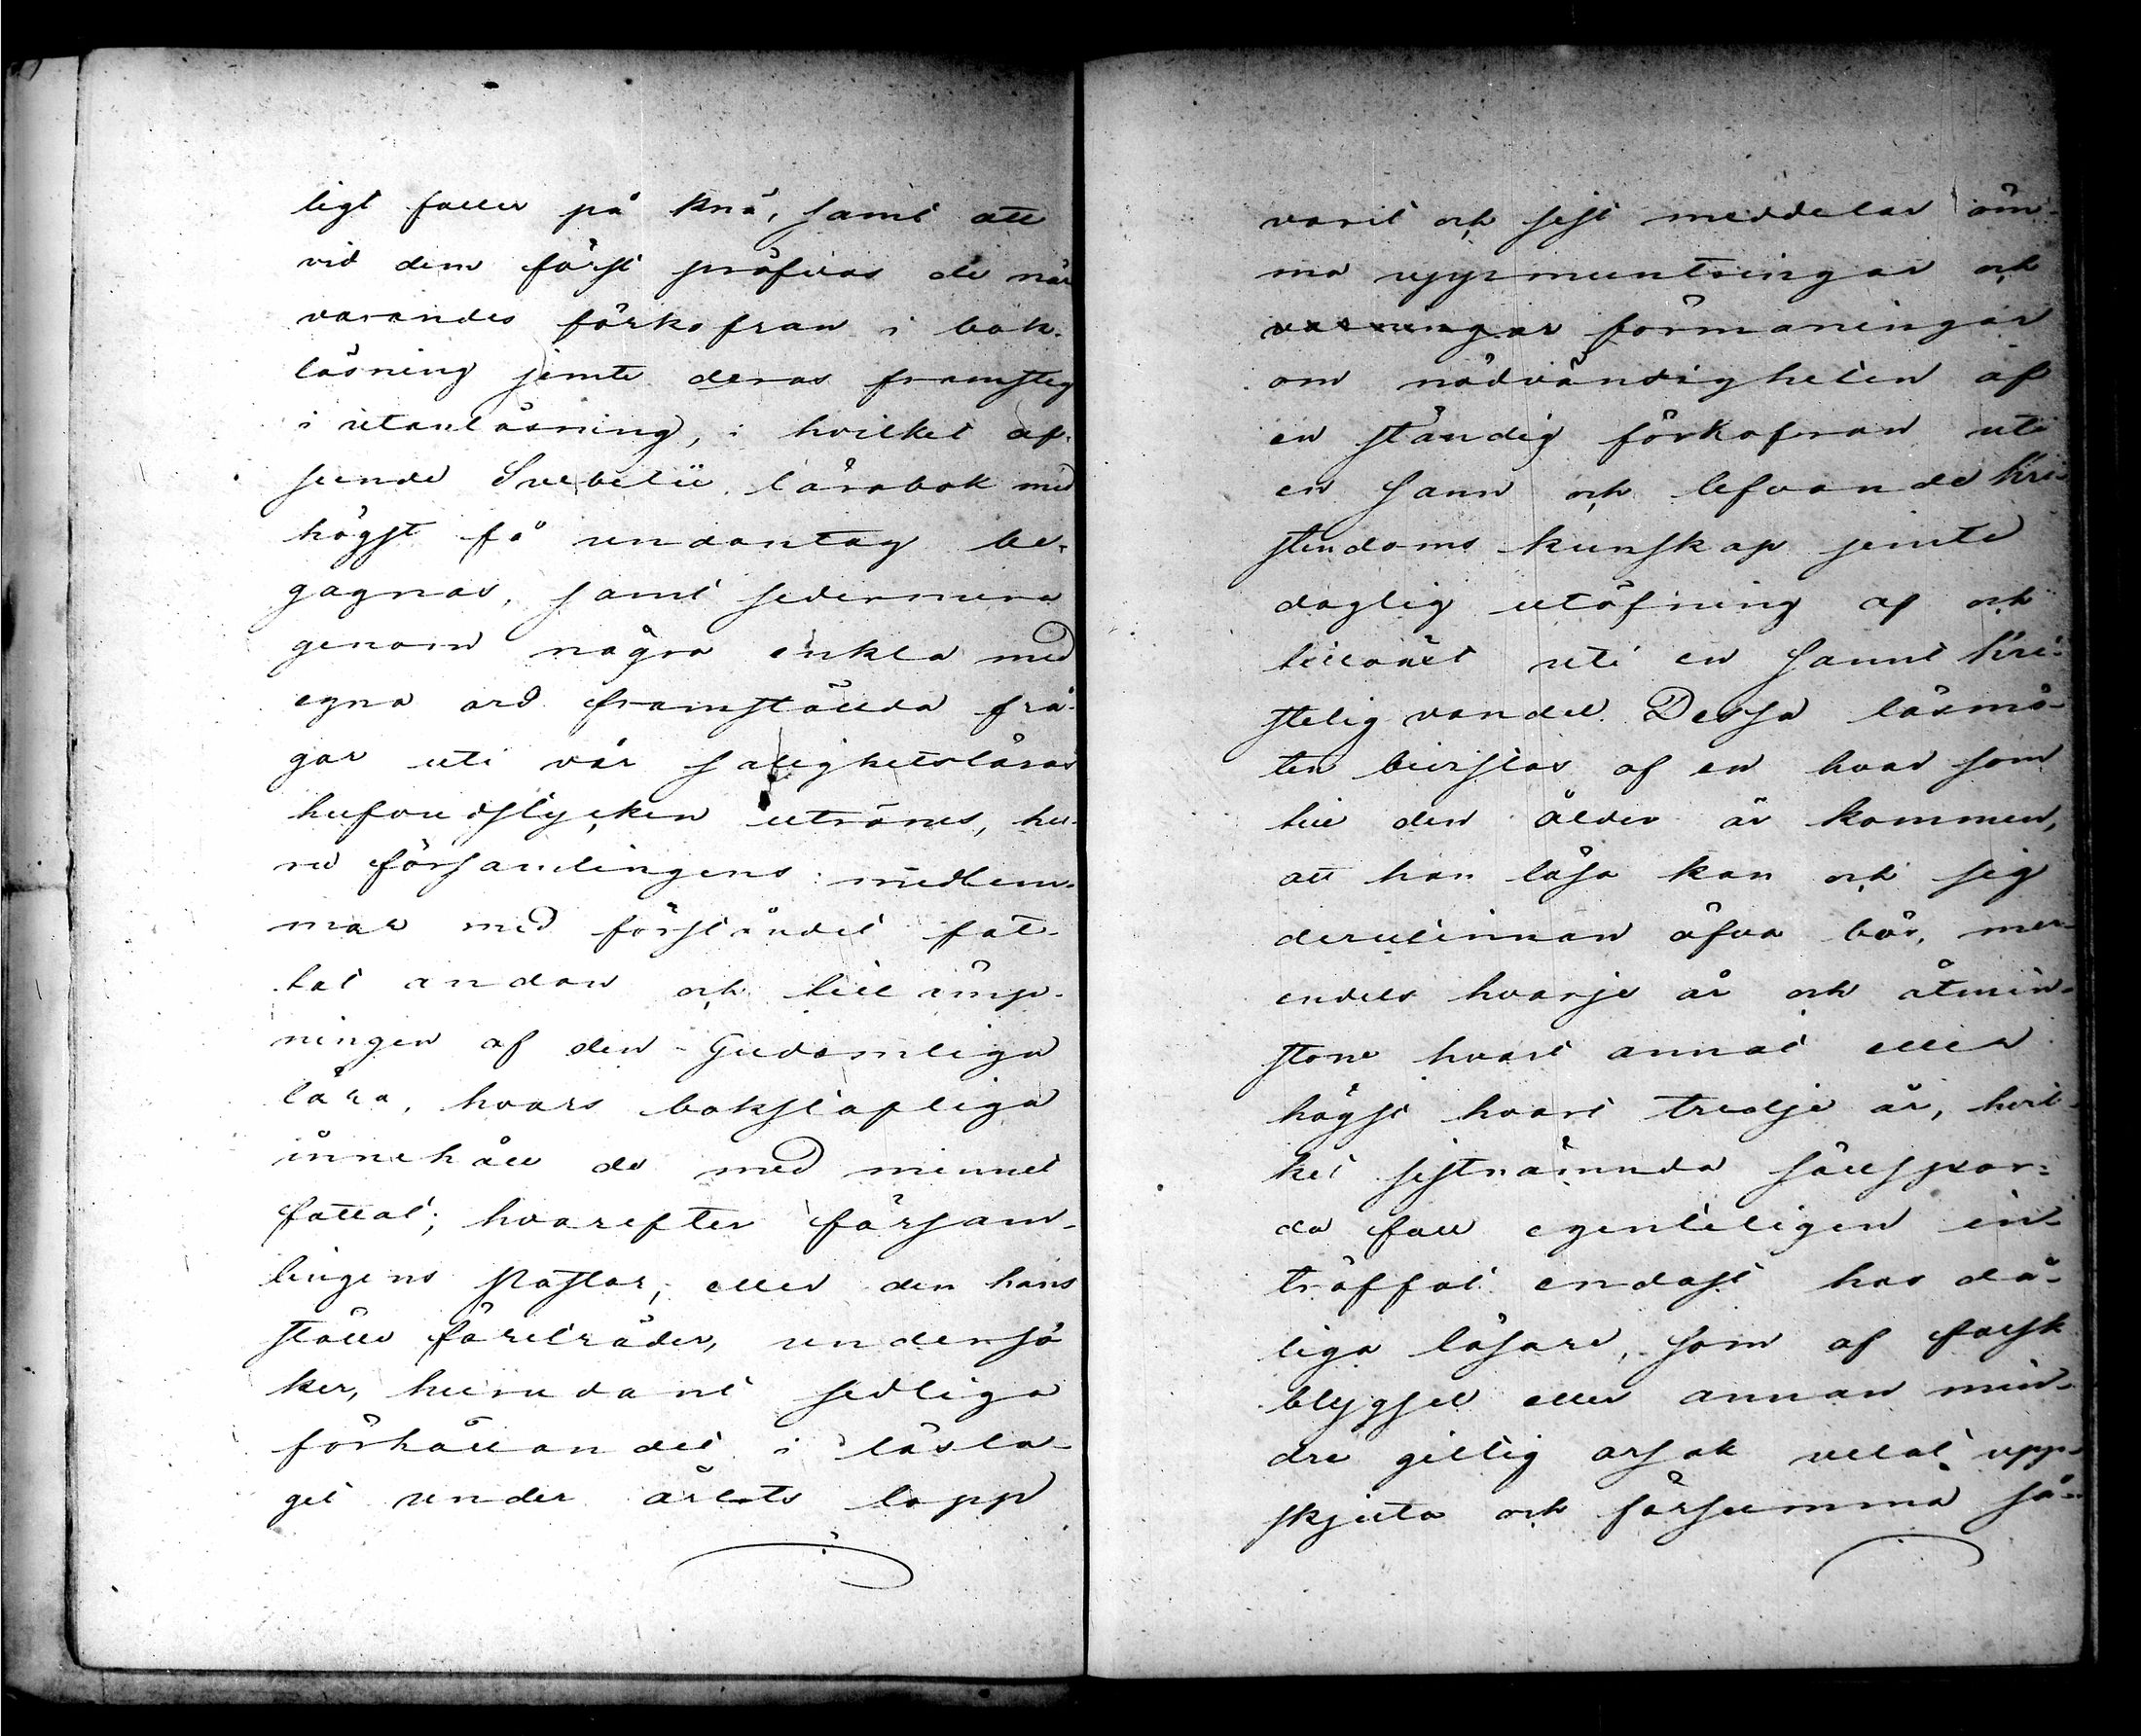 ligt faller på knä, samt att
vid dem först pröfvas de när
varandes förkofran i bok-
läsning jemte deras framsteg
i utanläsning, i hvilket af-
seende Svebelii lärobok med
högst få undantag be-
gagnas, samt sedermera
genom några enkla med
egna ord framstälda frå-
gar uti vår salighetsläras
hufvudstycken utrönes, hu-
ru församlingens medlem-
mar med förståndet fat-
tat andan och tillämp-
ningen af den Gudomliga
lära, hvars bokstafliga
innehåll de med minnet
fattat; hvarefter församl-
lingens Pastor, eller den hans
ställe företräder, undersö
ker, hurudant sedliga
förhållandet i läsla-
get under årets lopp
varit och sist meddelar öm-
ma uppmuntringar och
varningar förmaningar
om nödvändigheten af
en ständig förkofran uti
en sann och lefvande kri-
stendoms kunskap jemte
daglig utöfning af och
tillväxt uti en sannt kri-
stelig vandel. Dessa läsmö-
ten bivistas af en hvar som
till den ålder är kommen,
att han läsa kan och sig
derutinnan öfva bör, mer-
endels hvarje år och åtmin-
stone hvart annat eller
högst hvart tredje år, hvil-
ket sistnämnda sällspor-
da fall egenteligen in-
träffat endast hos då-
liga läsare, som af falsk
blygsel eller annan min-
dre giltig orsak velat upp-
skjuta och försumma så-